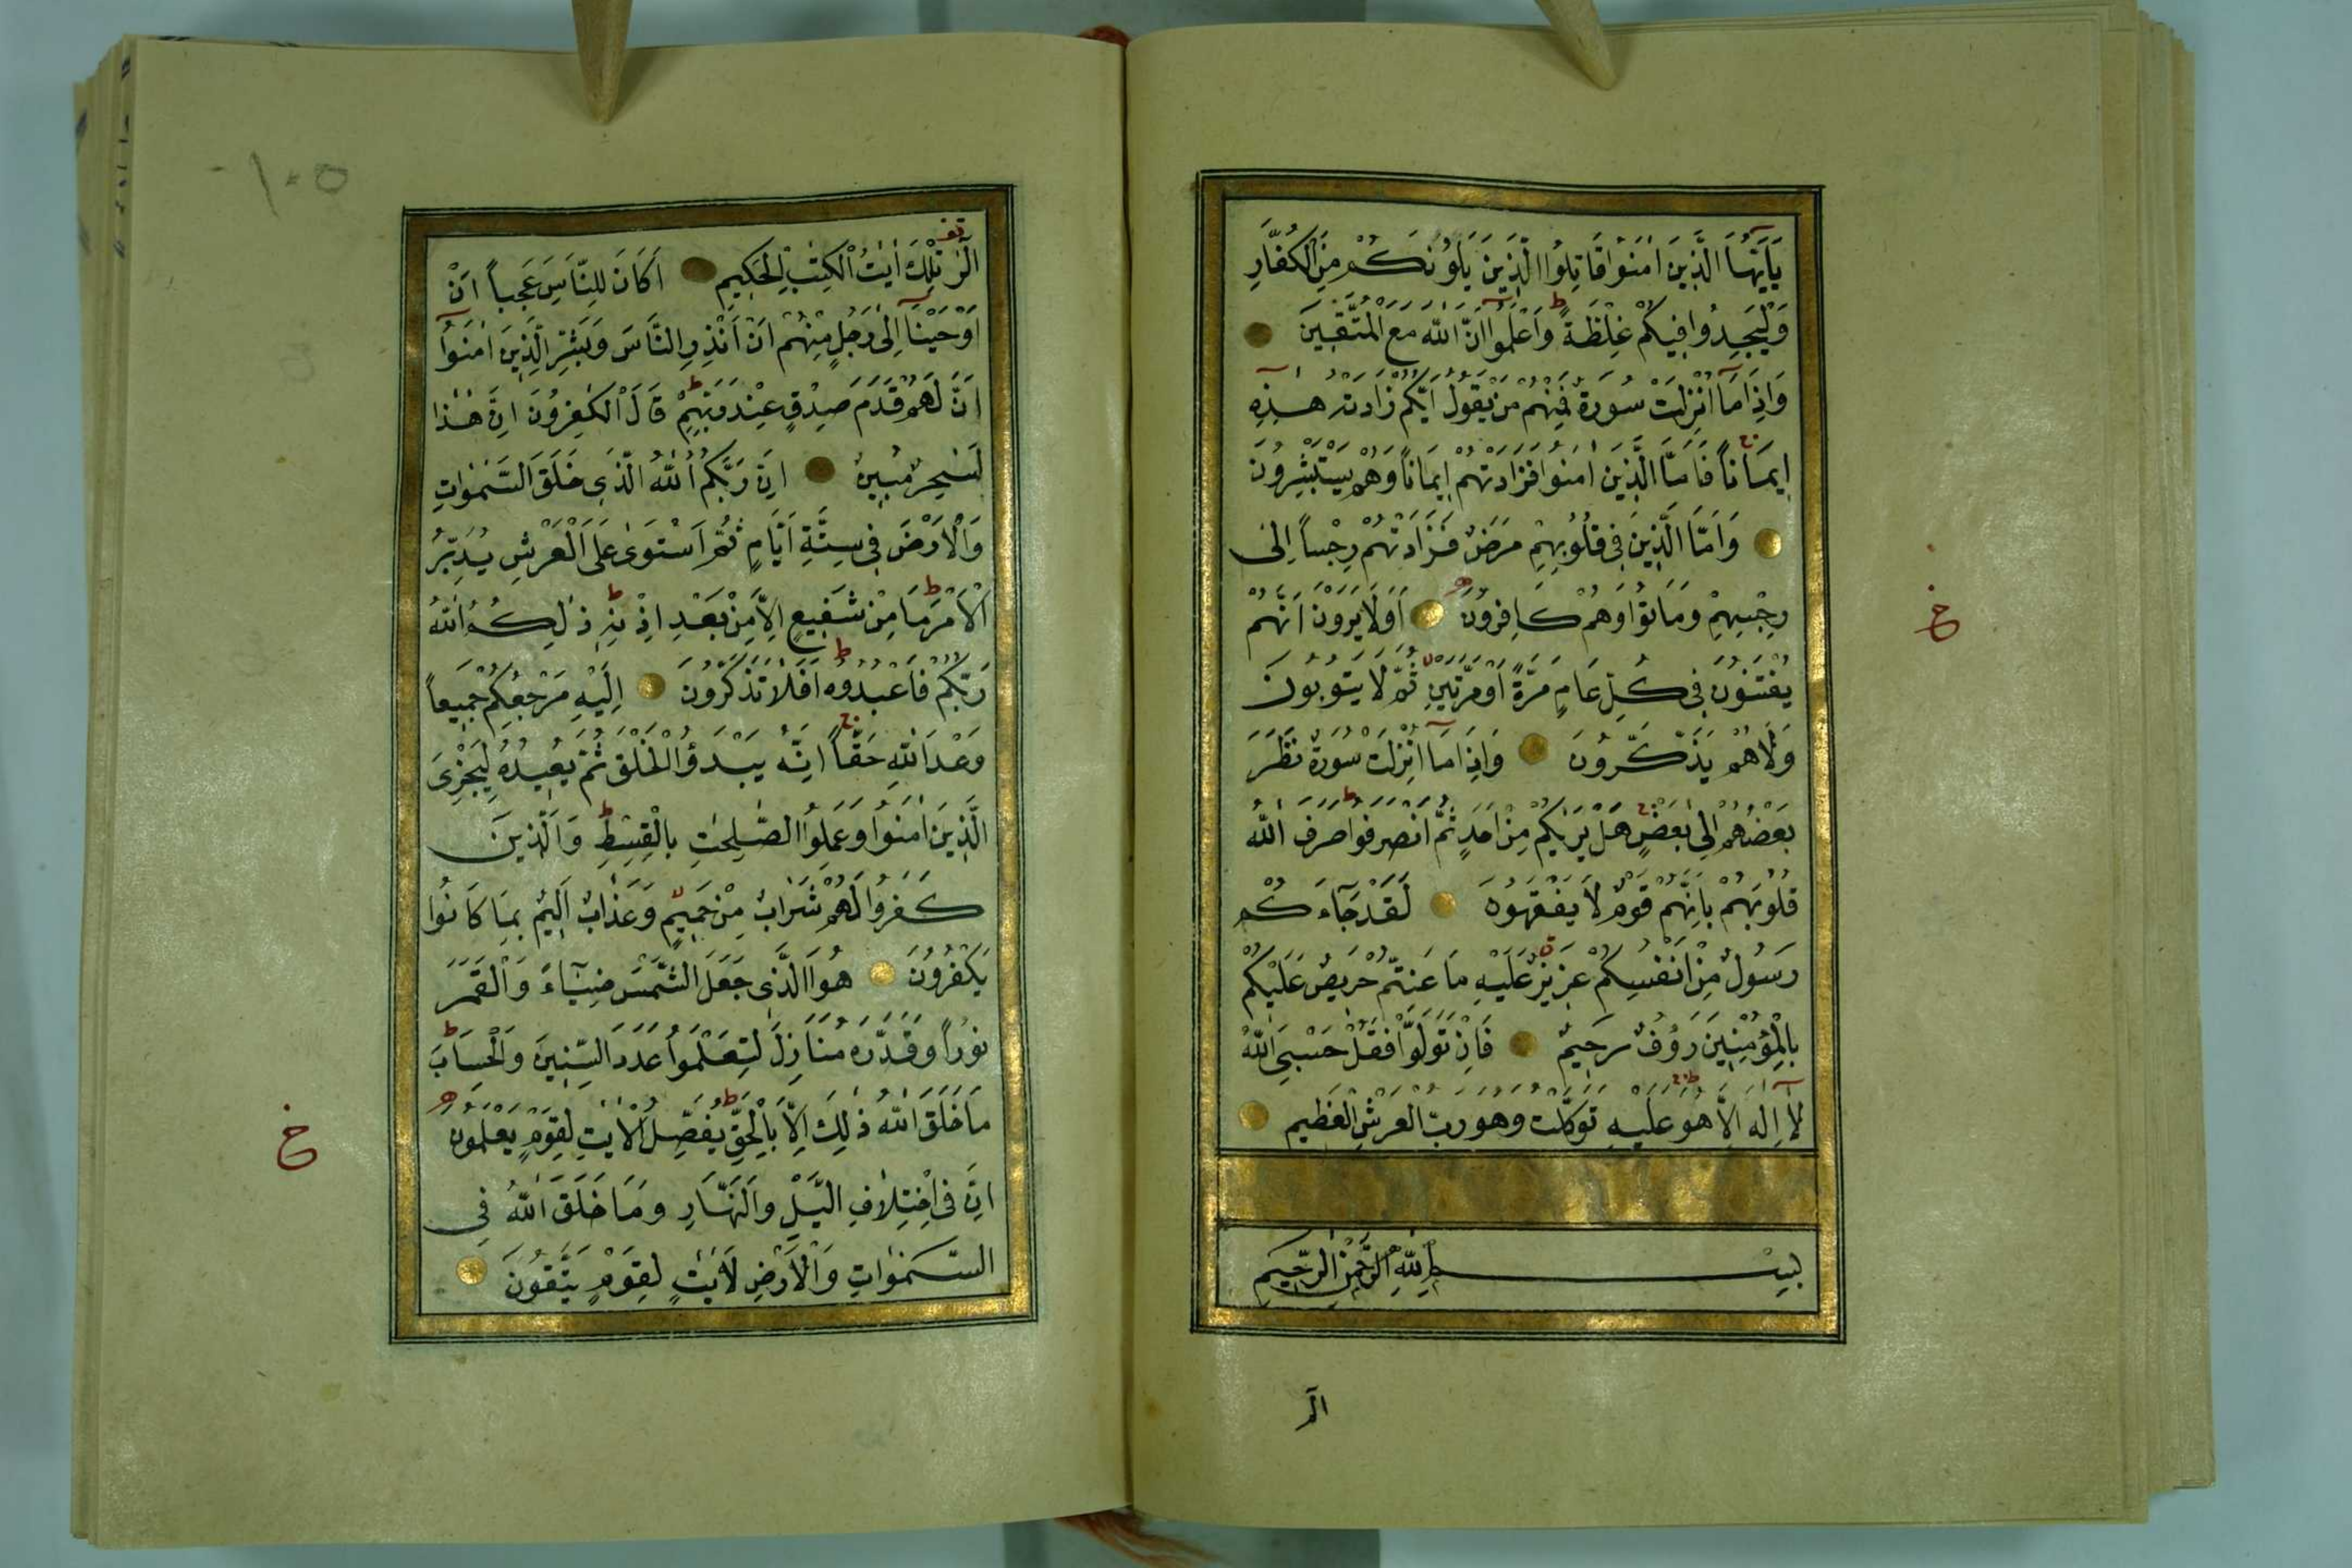 يَاَيُّهَا الَّذِينَ اٰمَنُوا قَاتِلُوا الَّذِينَ يَلُونَكُمْ مِنَ الْكُفَّارِ
وَلْيَجِدُوا فِيكُمْ غِلْظَةً وَاعْلَمُوا اَنَّ اللّٰهَ مَعَ الْمُتَّقِينَ
وَاِذَا مَا اُنْزِلَتْ سُورَةٌ فَمِنْهُمْ مَنْ يَقُولُ اَيُّكُمْ زَادَتْهُ هٰذِهِ
اِيمَانًا فَاَمَّا الَّذِينَ اٰمَنُوا فَزَادَتْهُمْ اِيمَانًا وَهُمْ يَسْتَبْشِرُونَ
وَاَمَّا الَّذِينَ فِى قُلُوبِهِمْ مَرَضٌ فَزَادَتْهُمْ رِجْسًا اِلٰى
رِجْسِهِمْ وَمَاتُوا وَهُمْ كَافِرُونَ اَوَلَا يَرَوْنَ اَنَّهُمْ
يُفْتَنُونَ فِى كُلِّ عَامٍ مَرَّةً اَوْ مَرَّتَيْنِ ثُمَّ لَا يَتُوبُونَ
وَلَا هُمْ يَذَّكَّرُونَ وَاِذَا مَا اُنْزِلَتْ سُورَةٌ نَظَرَ
بَعْضُهُمْ اِلٰى بَعْضٍ هَلْ يَرٰيكُمْ مِنْ اَحَدٍ ثُمَّ انْصَرَفُوا صَرَفَ اللّٰهُ
قُلُوبَهُمْ بِاَنَّهُمْ قَوْمٌ لَا يَفْقَهُونَ لَقَدْ جَآءَكُمْ
رَسُولٌ مِنْ اَنْفُسِكُمْ عَزِيزٌ عَلَيْهِ مَا عَنِتُّمْ حَرِيصٌ عَلَيْكُمْ
بِالْمُؤْمِنِينَ رَؤُفٌ رَحِيمٌ فَاِنْ تَوَلَّوْا فَقُلْ حَسْبِىَ اللّٰهُ
لَآ اِلٰهَ اِلَّا هُوَ عَلَيْهِ تَوَكَّلْتُ وَهُوَ رَبُّ الْعَرْشِ الْعَظِيمِ
بِسْمِ اللّٰهِ الرَّحْمٰنِ الرَّحِيمِ
الٓر
خ
١٠٥
الٓرٰ تِلْكَ اٰيَاتُ الْكِتٰبِ الْحَكِيمِ اَكَانَ لِلنَّاسِ عَجَبًا اَنْ
اَوْحَيْنَآ اِلٰى رَجُلٍ مِنْهُمْ اَنْ اَنْذِرِ النَّاسَ وَبَشِّرِ الَّذِينَ اٰمَنُوٓا
اَنَّ لَهُمْ قَدَمَ صِدْقٍ عِنْدَ رَبِّهِمْ قَالَ الْكٰفِرُونَ اِنَّ هٰذَا
لَسٰحِرٌ مُبِينٌ اِنَّ رَبَّكُمُ اللّٰهُ الَّذِى خَلَقَ السَّمٰوَاتِ
وَالْاَرْضَ فِى سِتَّةِ اَيَّامٍ ثُمَّ اسْتَوٰى عَلَى الْعَرْشِ يُدَبِّرُ
الْاَمْرَ مَا مِنْ شَفِيعٍ اِلَّا مِنْ بَعْدِ اِذْنِهِ ذٰلِكُمُ اللّٰهُ
رَبُّكُمْ فَاعْبُدُوهُ اَفَلَا تَذَكَّرُونَ اِلَيْهِ مَرْجِعُكُمْ جَمِيعًا
وَعْدَ اللّٰهِ حَقًّا اِنَّهُ يَبْدَؤُا الْخَلْقَ ثُمَّ يُعِيدُهُ لِيَجْزِىَ
الَّذِينَ اٰمَنُوا وَعَمِلُوا الصّٰلِحٰتِ بِالْقِسْطِ وَالَّذِينَ
كَفَرُوا لَهُمْ شَرَابٌ مِنْ حَمِيمٍ وَعَذَابٌ اَلِيمٌ بِمَا كَانُوا
يَكْفُرُونَ هُوَ الَّذِى جَعَلَ الشَّمْسَ ضِيَآءً وَالْقَمَرَ
نُورًا وَقَدَّرَهُ مَنَازِلَ لِتَعْلَمُوا عَدَدَ السِّنِينَ وَالْحِسَابَ
مَا خَلَقَ اللّٰهُ ذٰلِكَ اِلَّا بِالْحَقِّ يُفَصِّلُ الْاٰيٰتِ لِقَوْمٍ يَعْلَمُونَ
اِنَّ فِى اخْتِلَافِ الَّيْلِ وَالنَّهَارِ وَمَا خَلَقَ اللّٰهُ فِى
السَّمٰوَاتِ وَالْاَرْضِ لَاٰيٰتٍ لِقَوْمٍ يَتَّقُونَ
خ